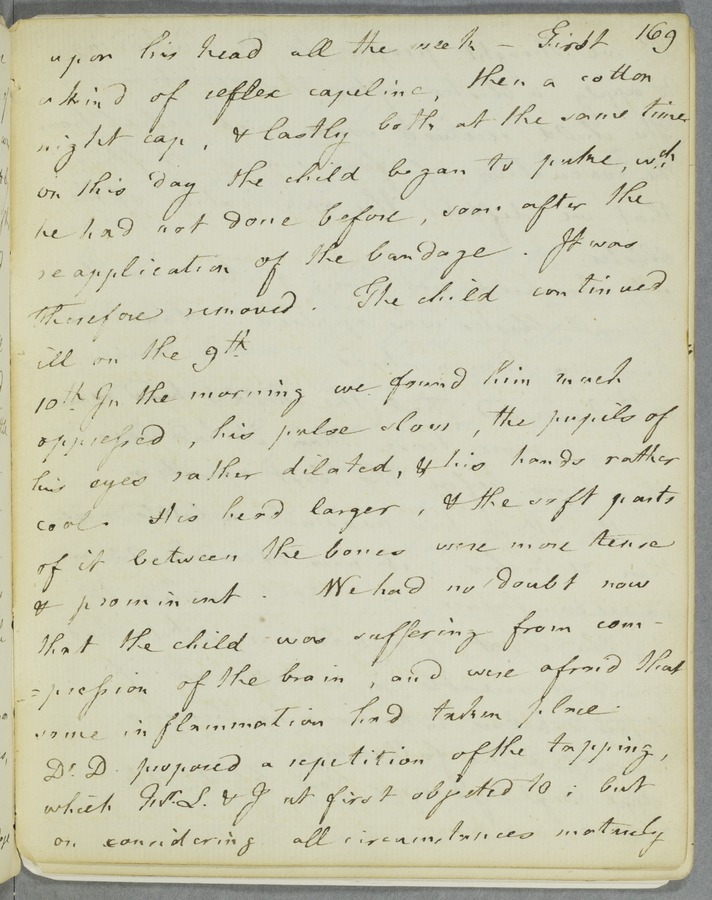 169
upon his head all the week – First
a kind of reflex capeline, then a cotton
night cap, & lastly both at the same time
on this day the child began to puke, wch
he had not done before, soon after the
reapplication of the bandage. It was
therefore removed. The child continued
ill on the 9th
10th In the morning we found him much
oppressed, his pulse slow, the pupils of
his eyes rather dilated, & his hands rather
cool. His head larger, & the soft parts
of it between the bones were more tense
& prominent. We had no doubt now
that the child was suffering from com-
=pression of the brain, and were afraid that
some inflammation had taken place.
Dr. D. proposed a repetition of the tapping,
which Mr. L. & I at first objected to; but
on considering all circumstances maturely